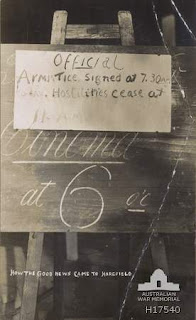 OFFICIAL
Armistice signed at 7.30am
Hostilities cease at
11 AM
Cinema
at 6 o'c
HOW THE GOOD NEWS CAME TO HAREFIELD.
AUSTRALIAN
WAR MEMORIAL
H17540